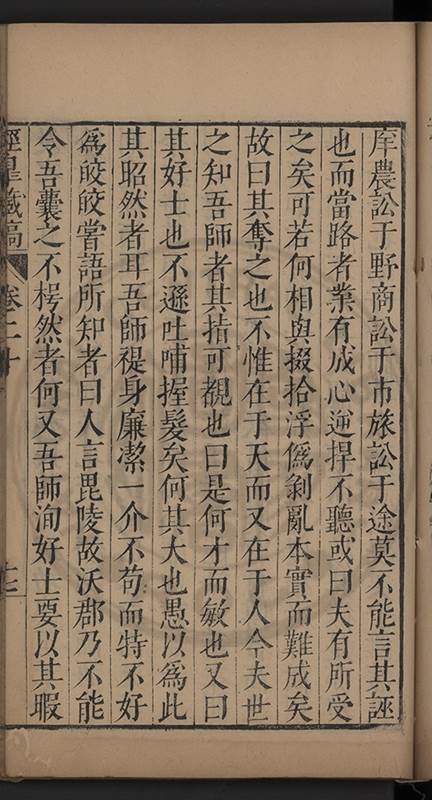 庠農訟于野商訟于市旅訟于途莫不能言其誣
也而當路者業有成心逆捍不聽或曰夫有所受
之矣可若何相與掇拾浮僞剝亂本實而難成矣
故曰其奪之也不惟在于天而又在于人今夫世
之知吾師者其指可覩也曰是何才而敏也又曰
其好士也不遜吐哺握髮矣何其大也愚以爲此
其昭然者耳吾師禔身廉潔一介不苟而特不好
爲皎皎嘗語所知者曰人言毘陵故沃郡乃不能
令吾囊之不枵然者何又吾師洵好士要以其暇
經皐藏稿 卷二十 十二